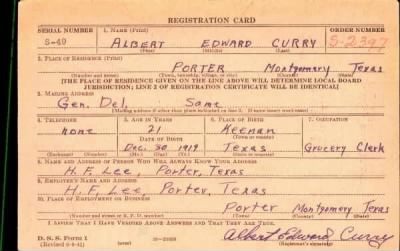 REGISTRATION CARD
SERIAL NUMBER 1. NAME (Print) ORDER NUMBER
S-49 ALBERT EDWARD CURRY S-2397
(First) (Middle) (Last)
2. PLACE OF RESIDENCE (Print)
PORTER Montgomery Texas
(Number and street) (Town, township, village, or city) (County) (State)
[THE PLACE OF RESIDENCE GIVEN ON THE LINE ABOVE WILL DETERMINE LOCAL BOARD
JURISDICTION; LINE 2 OF REGISTRATION CERTIFICATE WILL BE IDENTICAL]
3. MAILING ADDRESS
Gen. Del. Same
[Mailing address if other than place indicated on line 2. If same insert word same]
4. TELEPHONE 5. AGE IN YEARS 6. PLACE OF BIRTH 7. OCCUPATION
none 21 Keenan
DATE OF BIRTH (Town or county)
Dec. 30 1919 Texas Grocery Clerk
(Exchange) (Number) (Mo.) (Day) (Yr.) (State or country)
8. NAME AND ADDRESS OF PERSON WHO WILL ALWAYS KNOW YOUR ADDRESS
H. F. Lee, Porter, Texas
9. EMPLOYER'S NAME AND ADDRESS
H. F. Lee, Porter, Texas
10. PLACE OF EMPLOYMENT OR BUSINESS
Porter Montgomery Texas
(Number and street or R. F. D. number) (Town) (County) (State)
I AFFIRM THAT I HAVE VERIFIED ABOVE ANSWERS AND THAT THEY ARE TRUE.
D. S. S. FORM 1 Albert Edward Curry
(Registrant's signature)